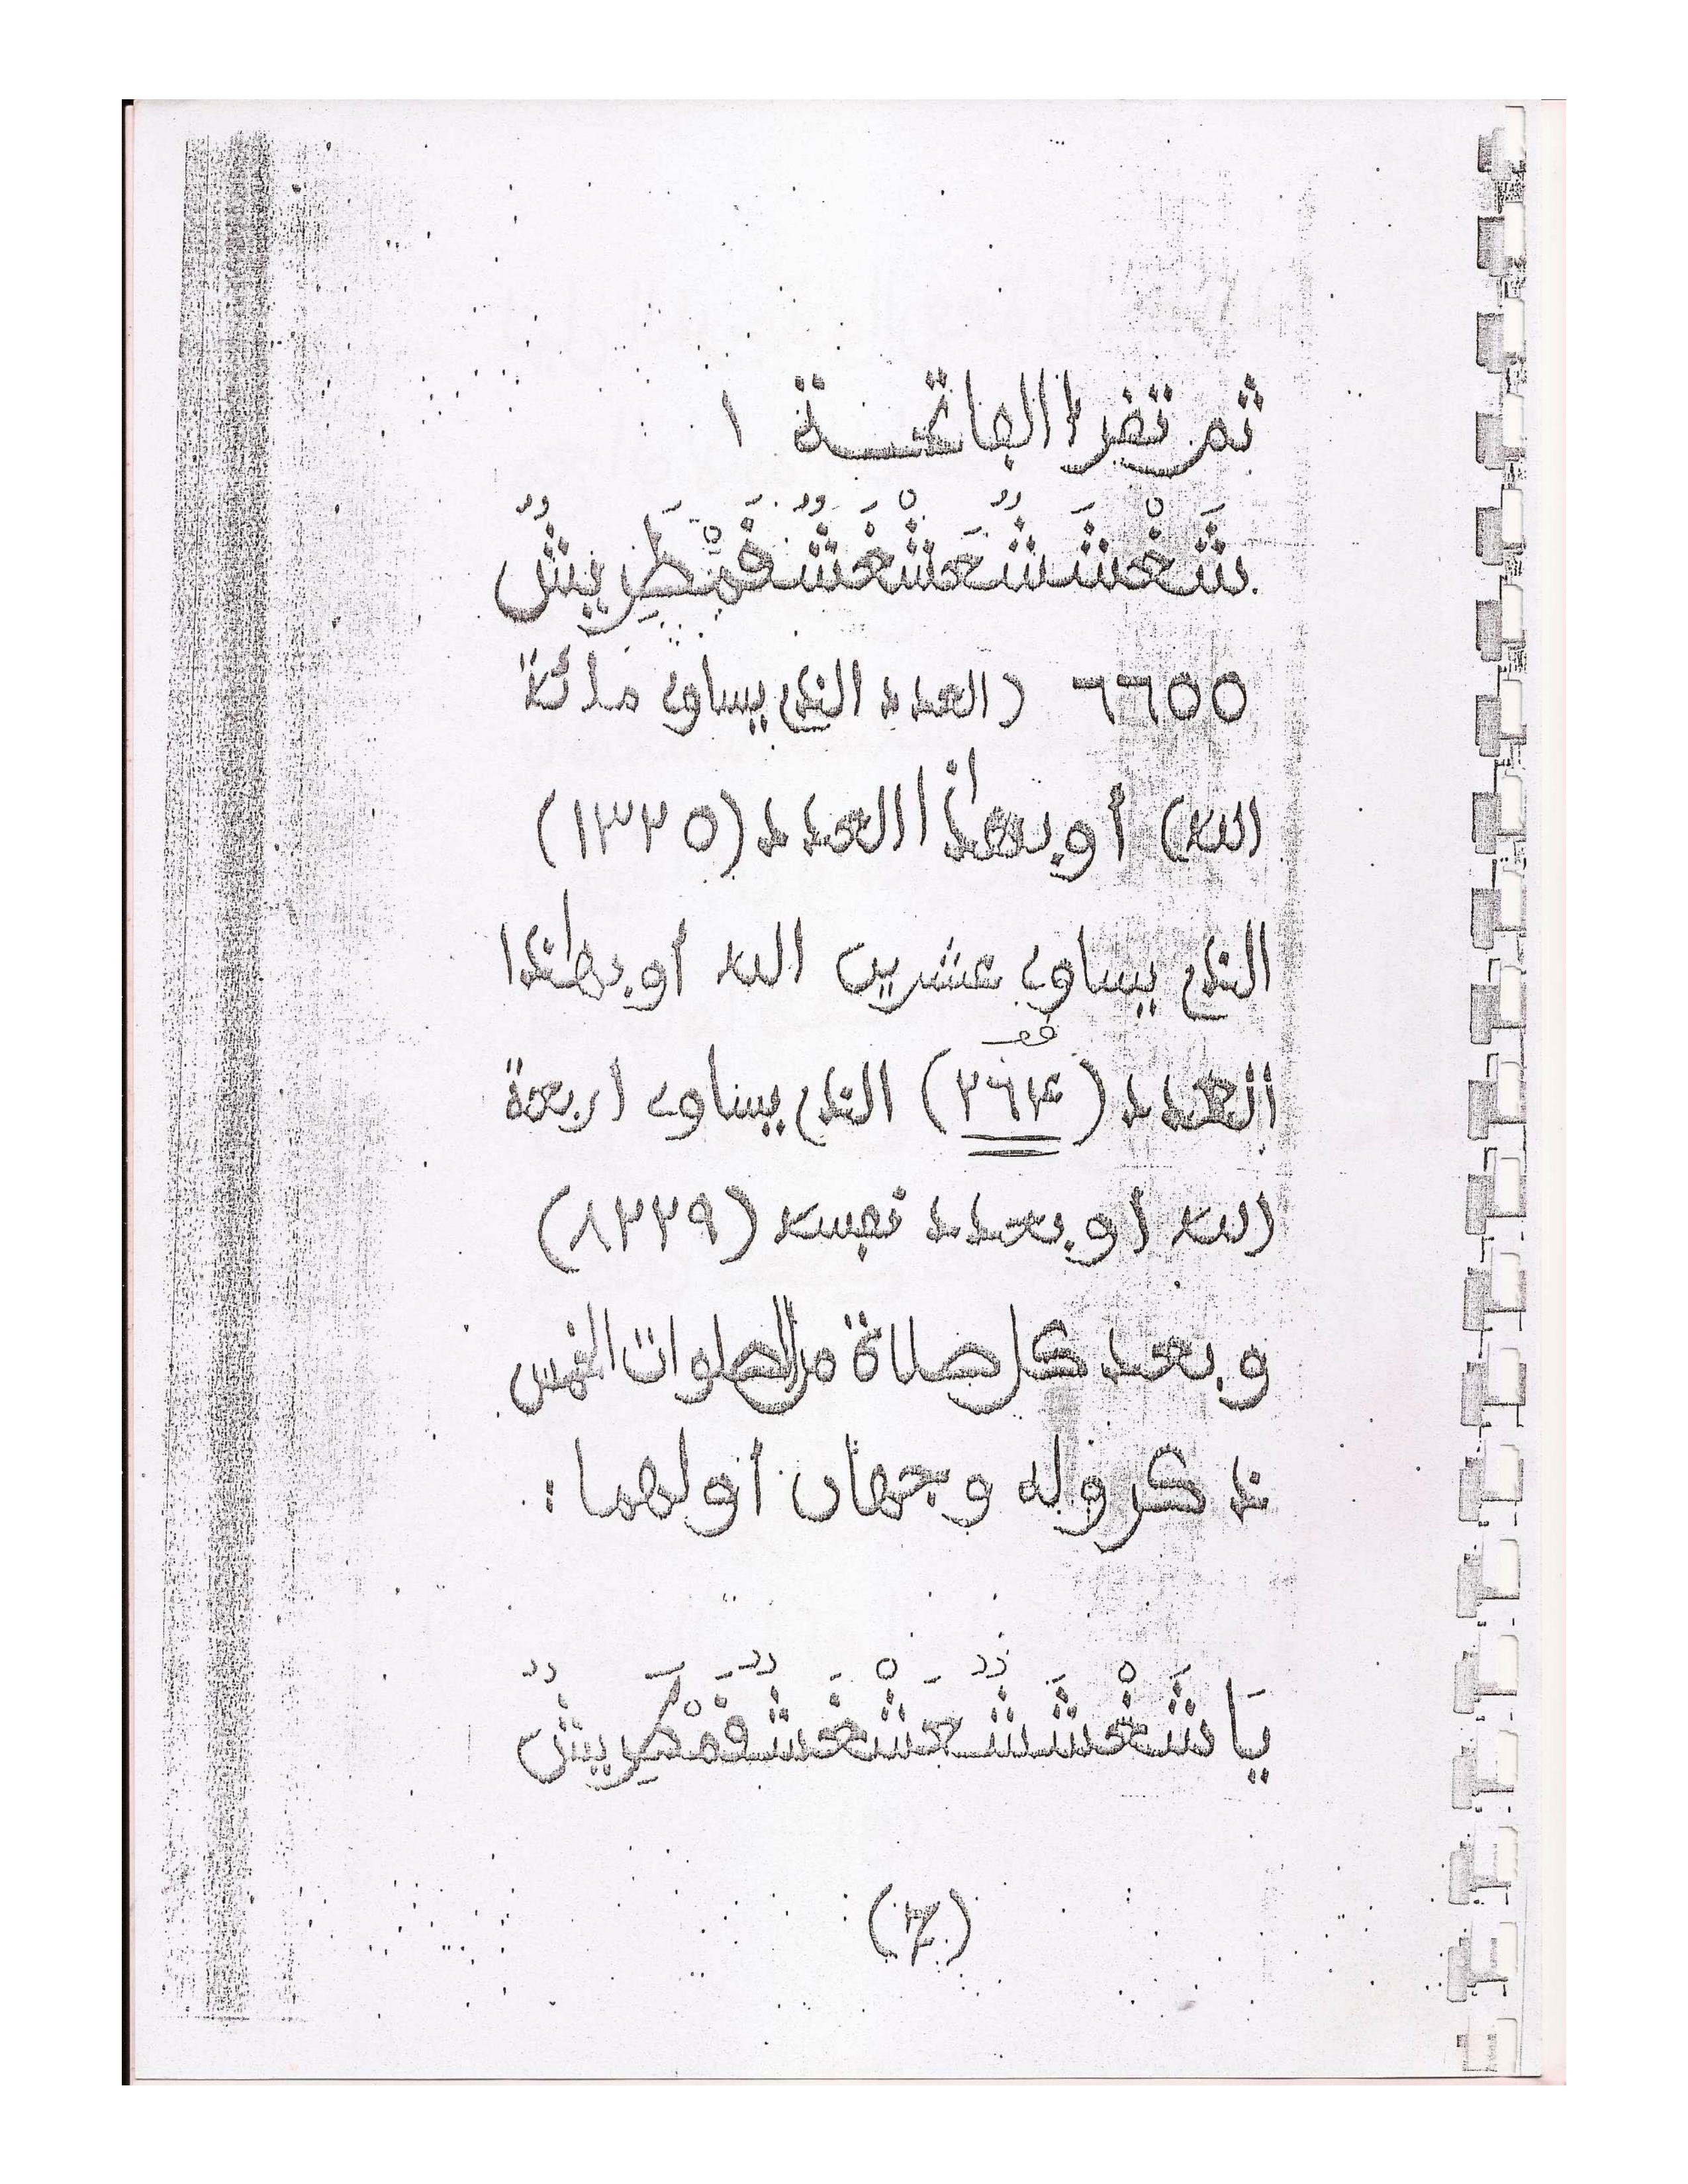 ثم تقرأ الفاتحة ١
شَغْشَشٌعَشْغَشٌفَمْطَرِيشٌ
٦٦٥٥ (العدد الذي يساوي مائة
الله) أو بهذا العدد (١٣٢٥)
الذي يساوي عشرين الله أو بهذا
العدد (٢٦٤) الذي يساوي اربعة
الله او بعدد نفسه (٨٢٢٩)
و بعد كل صلاة من الصلوات الخمس
ذكر وله وجهان أولهما :
يَا شَغْشَشٌعَشْغَشٌفَمْطَرِيشٌ